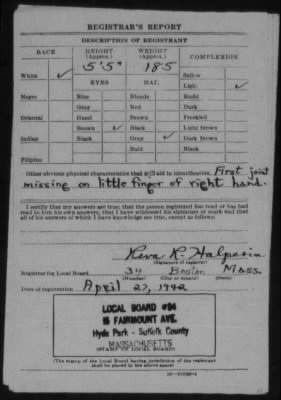 REGISTRAR'S REPORT
DESCRIPTION OF REGISTRANT
RACE
HEIGHT
(Approx.)
WEIGHT
(Approx.)
COMPLEXION
5'5"
185
White ✓
EYES
HAIR
Sallow
Light ✓
Negro
Blue
Blonde
Ruddy
Gray
Red
Dark
Oriental
Hazel
Brown
Freckled
Brown ✓
Black
Light brown
Indian
Black
Gray ✓
Dark brown
Bald
Black
Filipino
Other obvious physical characteristics that will aid in identification First joint
missing on little finger of right hand.
I certify that my answers are true; that the person registered has read or has had
read to him his own answers; that I have witnessed his signature or mark and that
all of his answers of which I have knowledge are true, except as follows:
Reva K. Halperin
(Signature of registrar)
Registrar for Local Board 34 Boston Mass.
(Number) (City or county) (State)
Date of registration April 27, 1942
LOCAL BOARD #34
15 FAIRMOUNT AVE.
Hyde Park - Suffolk County
MASSACHUSETTS
(STAMP OF LOCAL BOARD)
(The stamp of the Local Board having jurisdiction of the registrant
shall be placed in the above space)